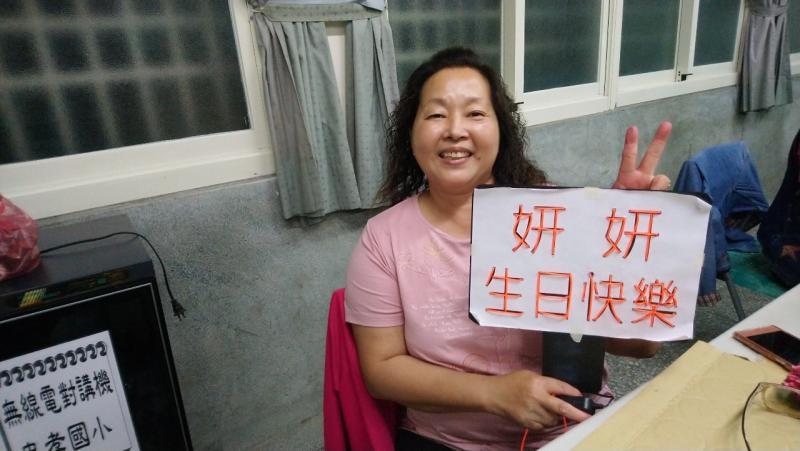 妍妍
生日快樂
無線電對講機
忠孝國小